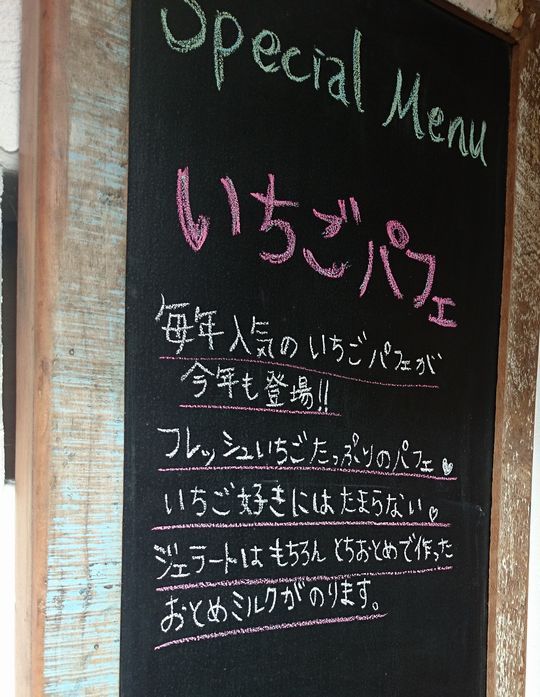 Special Menu
いちごパフェ
毎年人気のいちごパフェが
今年も登場!!
フレッシュいちごたっぷりのパフェ♥
いちご好きにはたまらない♡
ジェラートはもちろんとちおとめで作った
おとめミルクがのります。